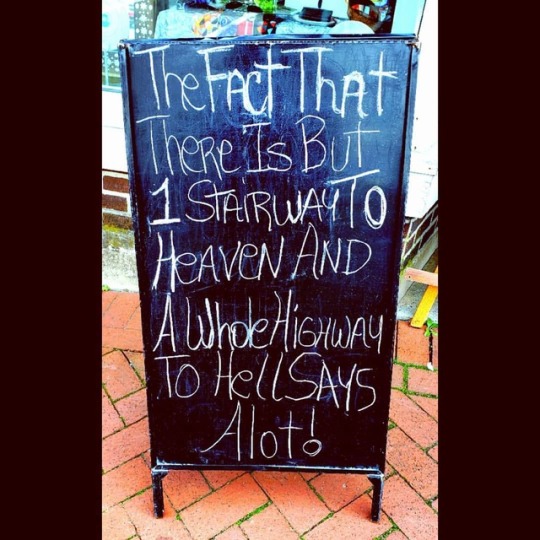 The Fact That
There Is But
1 Stairway To
Heaven And
A Whole Highway
To Hell Says
Alot!